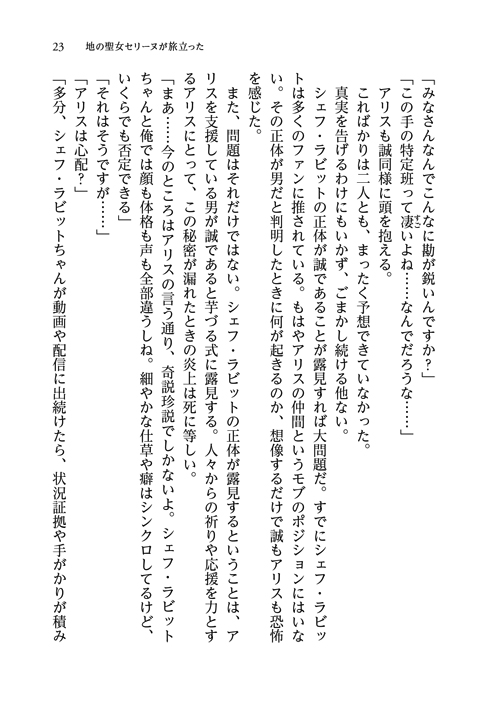 23　地の聖女セリーヌが旅立った
「みなさんなんでこんなに勘が鋭いんですか？」
「この手の特定班って凄いよね……なんでだろうな……」
すご
　アリスも誠同様に頭を抱える。
　こればかりは二人とも、まったく予想できていなかった。
　真実を告げるわけにもいかず、ごまかし続ける他ない。
　シェフ・ラビットの正体が誠であることが露見すれば大問題だ。すでにシェフ・ラビッ
トは多くのファンに推されている。もはやアリスの仲間というモブのポジションにはいな
い。その正体が男だと判明したときに何が起きるのか、想像するだけで誠もアリスも恐怖
を感じた。
　また、問題はそれだけではない。シェフ・ラビットの正体が露見するということは、ア
リスを支援している男が誠であると芋づる式に露見する。人々からの祈りや応援を力とす
るアリスにとって、この秘密が漏れたときの炎上は死に等しい。
「まあ……今のところはアリスの言う通り、奇説珍説でしかないよ。シェフ・ラビット
ちゃんと俺では顔も体格も声も全部違うしね。細やかな仕草や癖はシンクロしてるけど、
いくらでも否定できる」
「それはそうですが……」
「アリスは心配？」
「多分、シェフ・ラビットちゃんが動画や配信に出続けたら、状況証拠や手がかりが積み